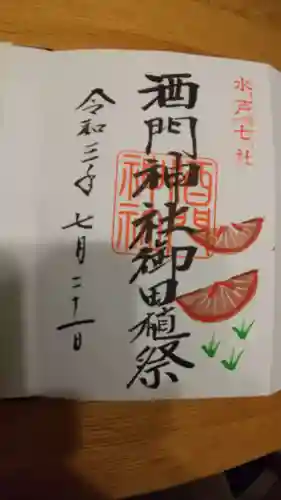 水戸七社
酒門神社御田植祭
酒門
神社
令和三年 七月二十一日